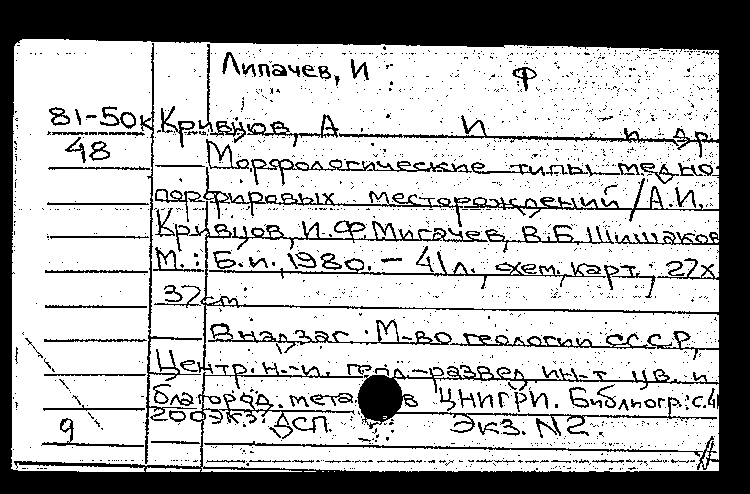 Липачев, И Ф
81-50к Кривцов, А И и др
48 Морфологические типы медно-
порфировых месторождений / А.И.
Кривцов, И.Ф Мигачев, В.Б. Шишаков
М.: Б.и., 1980. – 41 л., схем., карт.; 27х
37см.
В надзаг: М-во геологии СССР,
Центр. н.-и. геол-развед. ин-т цв. и
благород. мета в ЦНИГРИ. Библиогр.: с.41
200экз. ДСП. Экз. N2.
9